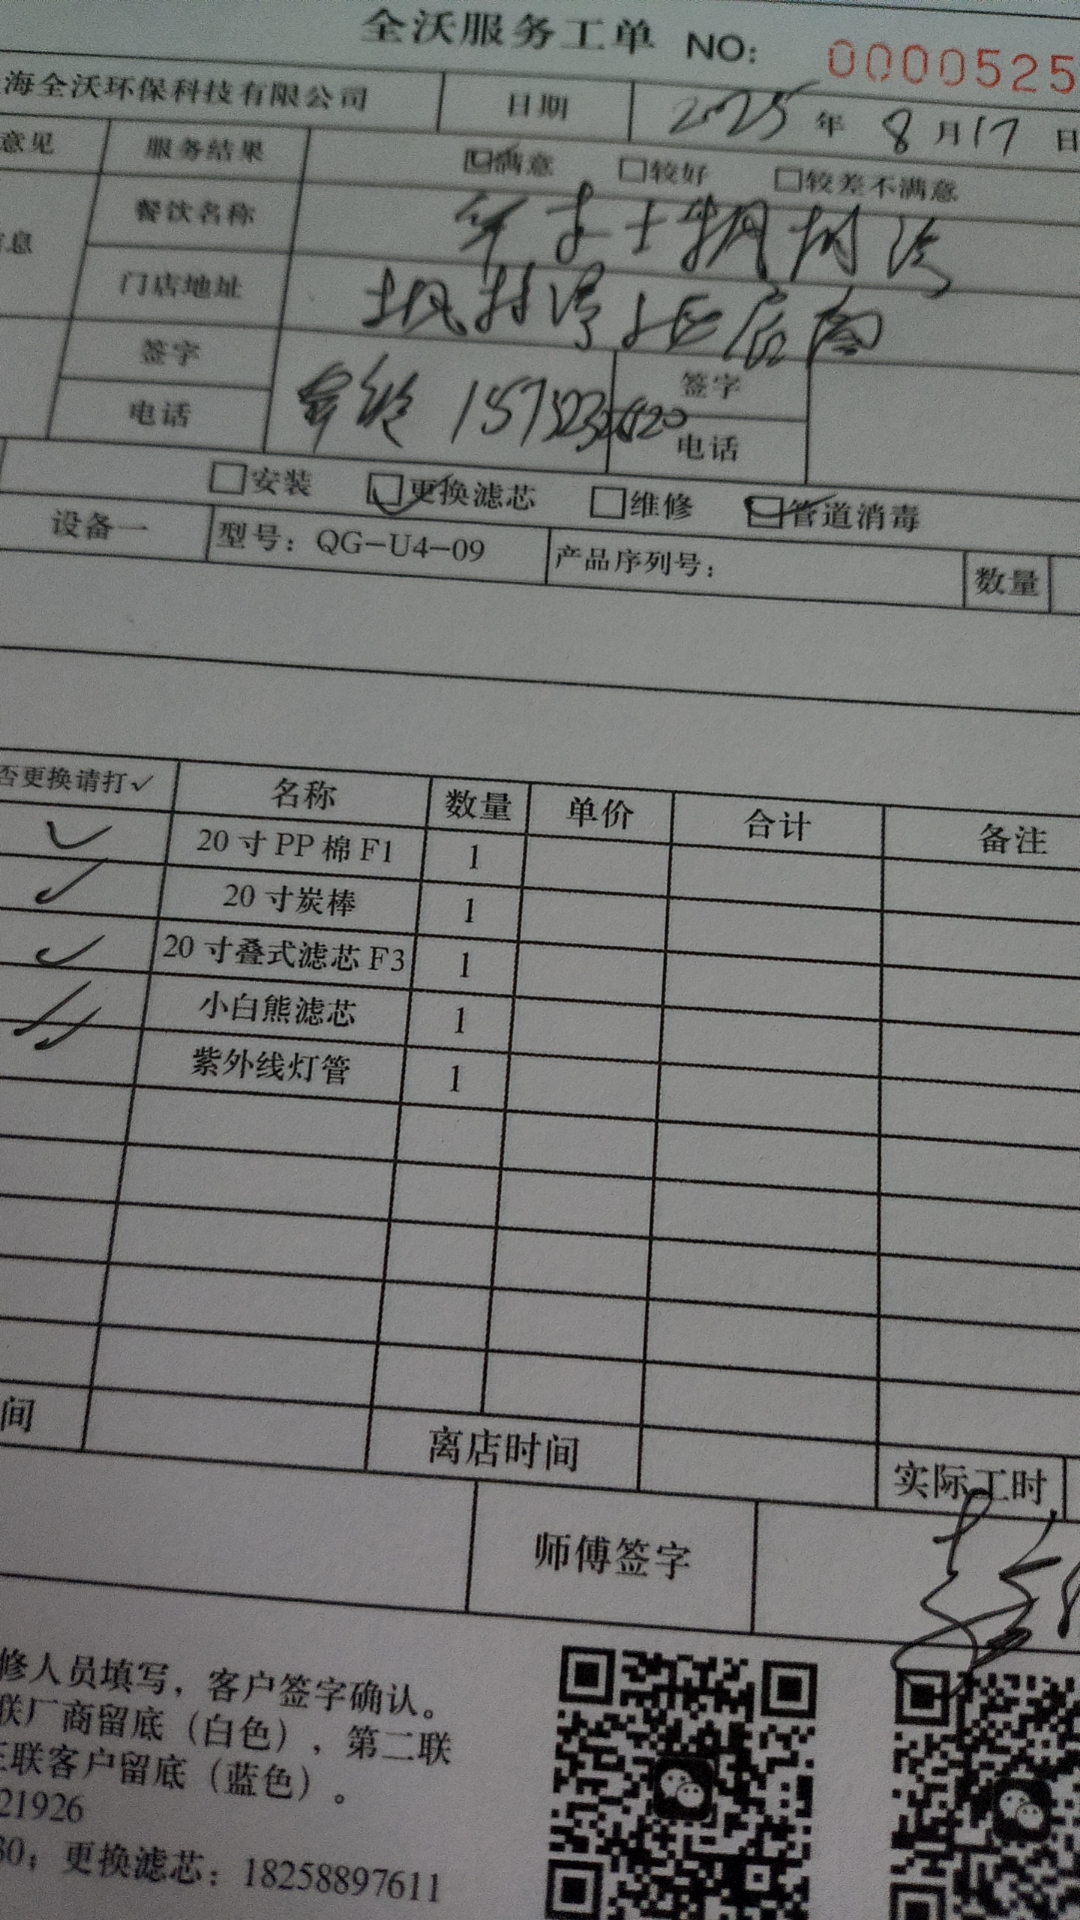 全沃服务工单 NO: 0000525
海全沃环保科技有限公司 日期 2025 年 8 月 17 日
意见 服务结果 ☑满意 □较好 □较差不满意
息 餐饮名称
门店地址
签字 签字
电话 电话
□安装 ☑更换滤芯 □维修 ☑管道消毒
设备一 型号：QG-U4-09 产品序列号： 数量
否更换请打✓ 名称 数量 单价 合计 备注
✓ 20寸PP棉F1 1
✓ 20寸炭棒 1
✓ 20寸叠式滤芯F3 1
✓ 小白熊滤芯 1
✓ 紫外线灯管 1
间 离店时间 实际工时
师傅签字
修人员填写，客户签字确认。
联厂商留底（白色），第二联
三联客户留底（蓝色）。
21926
30；更换滤芯：18258897611